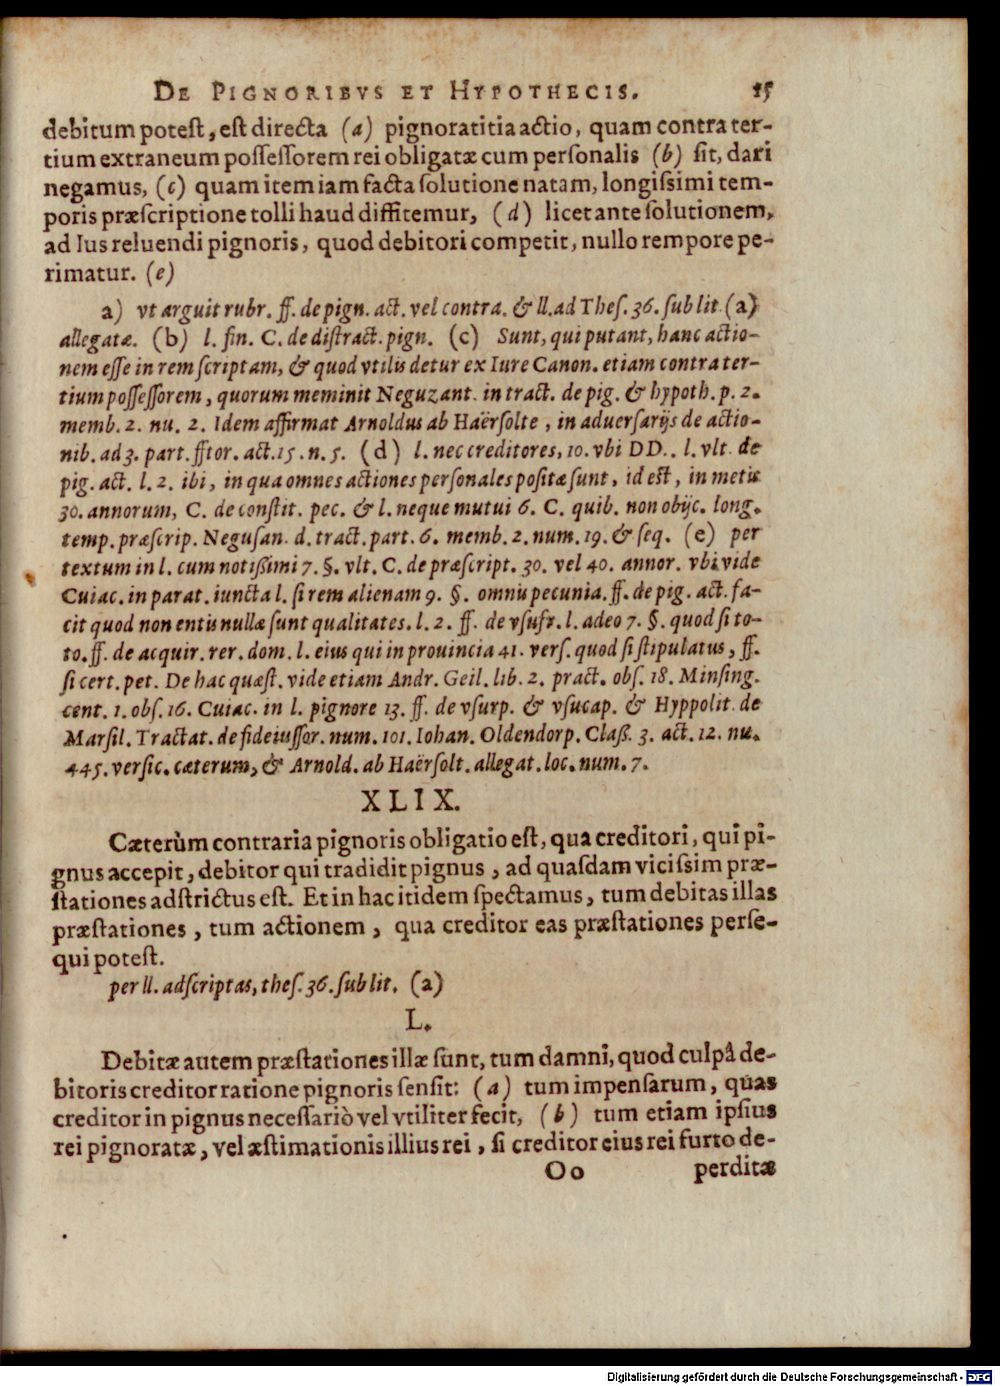 DE PIGNORIBVS ET HYPOTHECIS. 15
debitum poteſt, eſt directa (a) pignoratitia actio, quam contra ter-
tium extraneum poſſeſſorem rei obligatæ cum perſonalis (b) ſit, dari
negamus, (c) quam item iam facta ſolutione natam, longiſsimi tem-
poris præſcriptione tolli haud diffitemur, (d) licet ante ſolutionem,
ad Ius reluendi pignoris, quod debitori competit, nullo tempore pe-
rimatur. (e)
a) vt arguit rubr. ff. de pign. act. vel contra. & ll. ad Theſ. 36. ſub lit. (a)
allegatæ. (b) l. fin. C. de diſtract. pign. (c) Sunt, qui putant, hanc actio-
nem eſſe in rem ſcriptam, & quod vtilis detur ex Iure Canon. etiam contra ter-
tium poſſeſſorem, quorum meminit Neguzant. in tract. de pig. & hypoth. p. 2.
memb. 2. nu. 2. Idem affirmat Arnoldus ab Haërſolte, in aduerſarijs de actio-
nib. ad 3. part. fftor. act. 15. n. 5. (d) l. nec creditores, 10. vbi DD.. l. vlt. de
pig. act. l. 2. ibi, in qua omnes actiones perſonales poſitæ ſunt, id eſt, in metis
30. annorum, C. de conſtit. pec. & l. neque mutui 6. C. quib. non obijc. long.
temp. præſcrip. Neguſan. d. tract. part. 6. memb. 2. num. 19. & ſeq. (e) per
textum in l. cum notißimi 7. §. vlt. C. de præſcript. 30. vel 40. annor. vbi vide
Cuiac. in parat. iuncta l. ſi rem alienam 9. §. omnis pecunia. ff. de pig. act. fa-
cit quod non entis nullæ ſunt qualitates. l. 2. ff. de vſufr. l. adeo 7. §. quod ſi to-
to. ff. de acquir. rer. dom. l. eius qui in prouincia 41. verſ. quod ſi ſtipulatus, ff.
ſi cert. pet. De hac quæſt. vide etiam Andr. Geil. lib. 2. pract. obſ. 18. Minſing.
cent. 1. obſ. 16. Cuiac. in l. pignore 13. ff. de vſurp. & vſucap. & Hyppolit. de
Marſil. Tractat. de fideiuſſor. num. 101. Iohan. Oldendorp. Claß. 3. act. 12. nu.
445. verſic. cæterum, & Arnold. ab Haërſolt. allegat. loc. num. 7.
XLIX.
Cæterùm contraria pignoris obligatio eſt, qua creditori, qui pi-
gnus accepit, debitor qui tradidit pignus, ad quaſdam viciſsim præ-
ſtationes adſtrictus eſt. Et in hac itidem ſpectamus, tum debitas illas
præſtationes, tum actionem, qua creditor eas præſtationes perſe-
qui poteſt.
per ll. adſcriptas, theſ. 36. ſub lit. (a)
L.
Debitæ autem præſtationes illæ ſunt, tum damni, quod culpâ de-
bitoris creditor ratione pignoris ſenſit: (a) tum impenſarum, quas
creditor in pignus neceſſariò vel vtiliter fecit, (b) tum etiam ipſius
rei pignoratæ, vel æſtimationis illius rei, ſi creditor eius rei furto de-
Oo perditæ
Digitalisierung gefördert durch die Deutsche Forschungsgemeinschaft - DFG